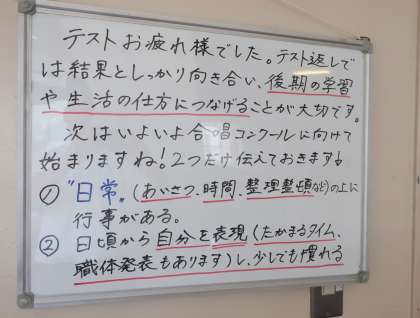 テストお疲れ様でした。テスト返しで
は結果としっかり向き合い、後期の学習
や生活の仕方につなげることが大切です。
次はいよいよ合唱コンクールに向けて
始まりますね!2つだけ伝えておきます!
① "日常"(あいさつ、時間、整理整頓など)の上に
行事がある。
② 日頃から自分を表現(たかまるタイム、
職体発表もあります)し、少しでも慣れる